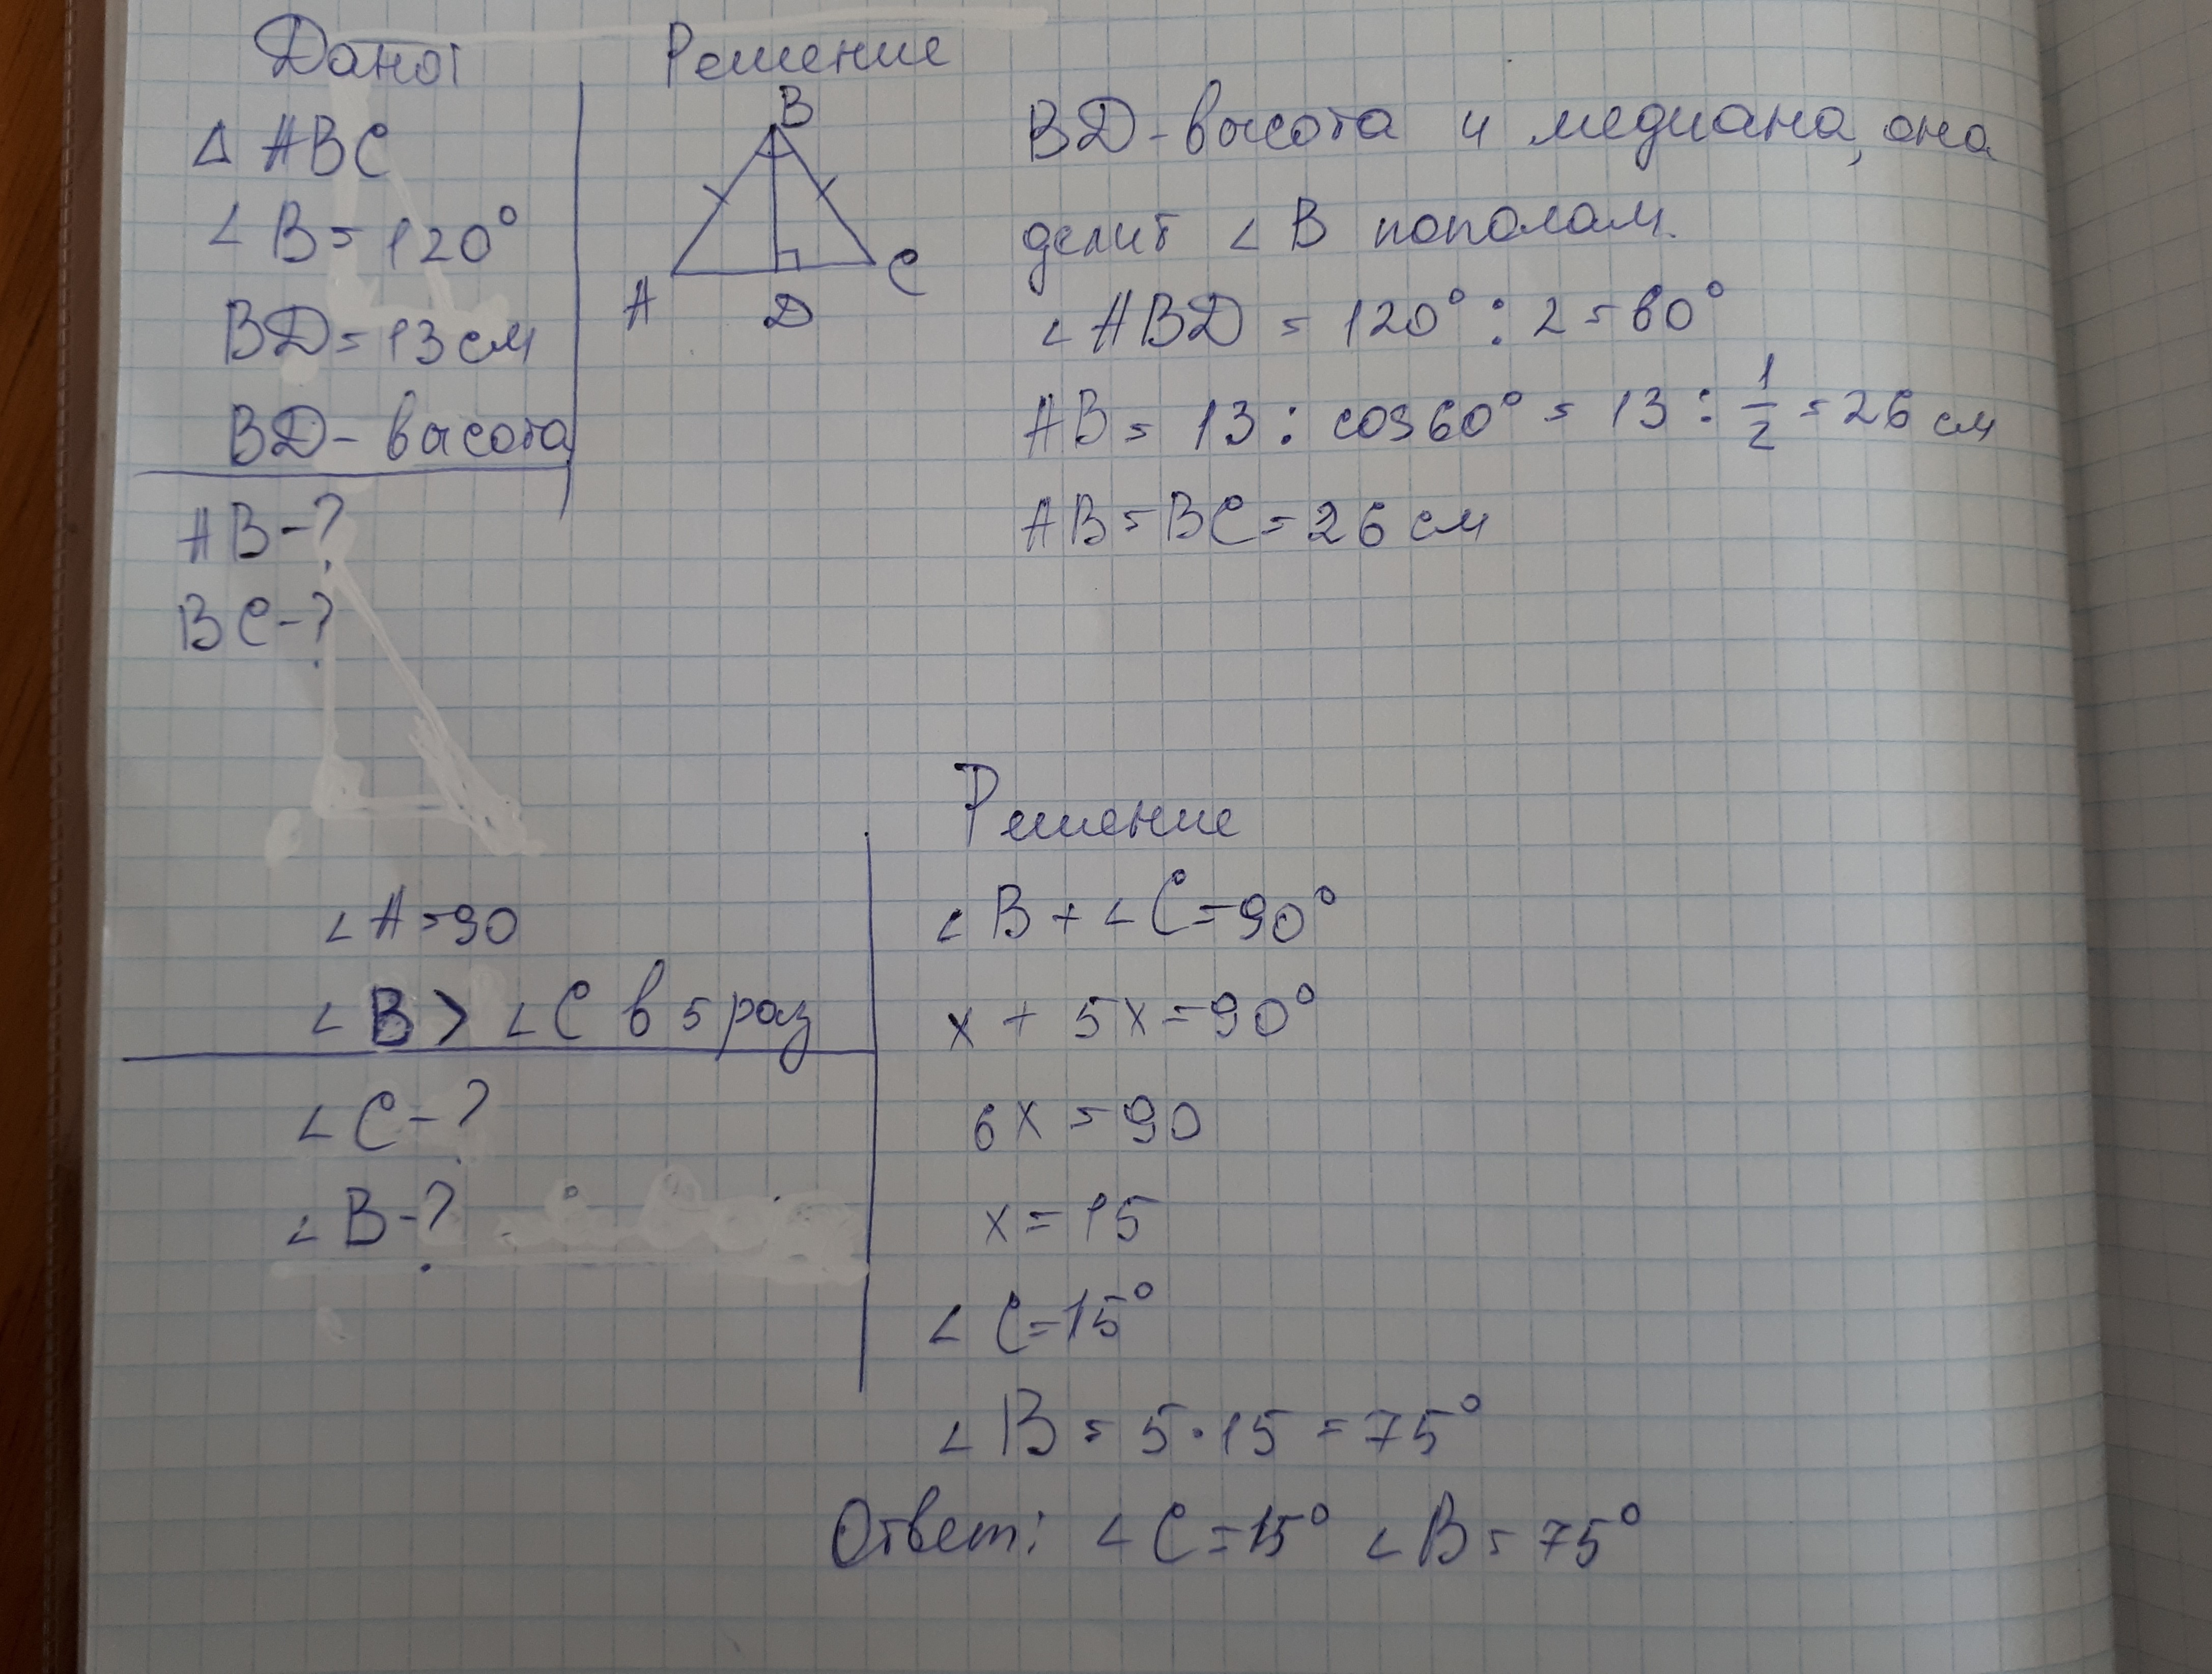 Дано:
△ ABC
∠ B = 120°
BD = 13 см
BD - высота
AB - ?
BC - ?
Решение
B
A
D
C
BD - высота и медиана, она
делит ∠ B пополам.
∠ ABD = 120° : 2 = 60°
AB = 13 : cos 60° = 13 : 1/2 = 26 см
AB = BC = 26 см
∠ A = 90
∠ B > ∠ C в 5 раз
∠ C - ?
∠ B - ?
Решение
∠ B + ∠ C = 90°
x + 5x = 90°
6x = 90
x = 15
∠ C = 15°
∠ B = 5 · 15 = 75°
Ответ: ∠ C = 15° ∠ B = 75°